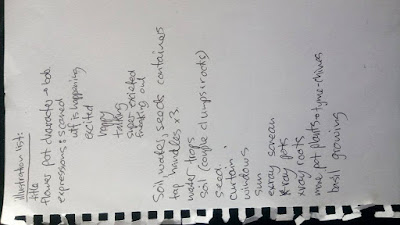 illustration list:
title
flower pot character → look
expressions: scared
wtf is happening
excited
happy
talking
super excited
freaking out
Soil, water, seeds containers
tap handles x3.
water drops
soil (couple clumps & rocks)
seed.
curtain.
windows
sun
exray screan
x-ray pots
xray roots
more pot plants → tyme-chives
basil growing